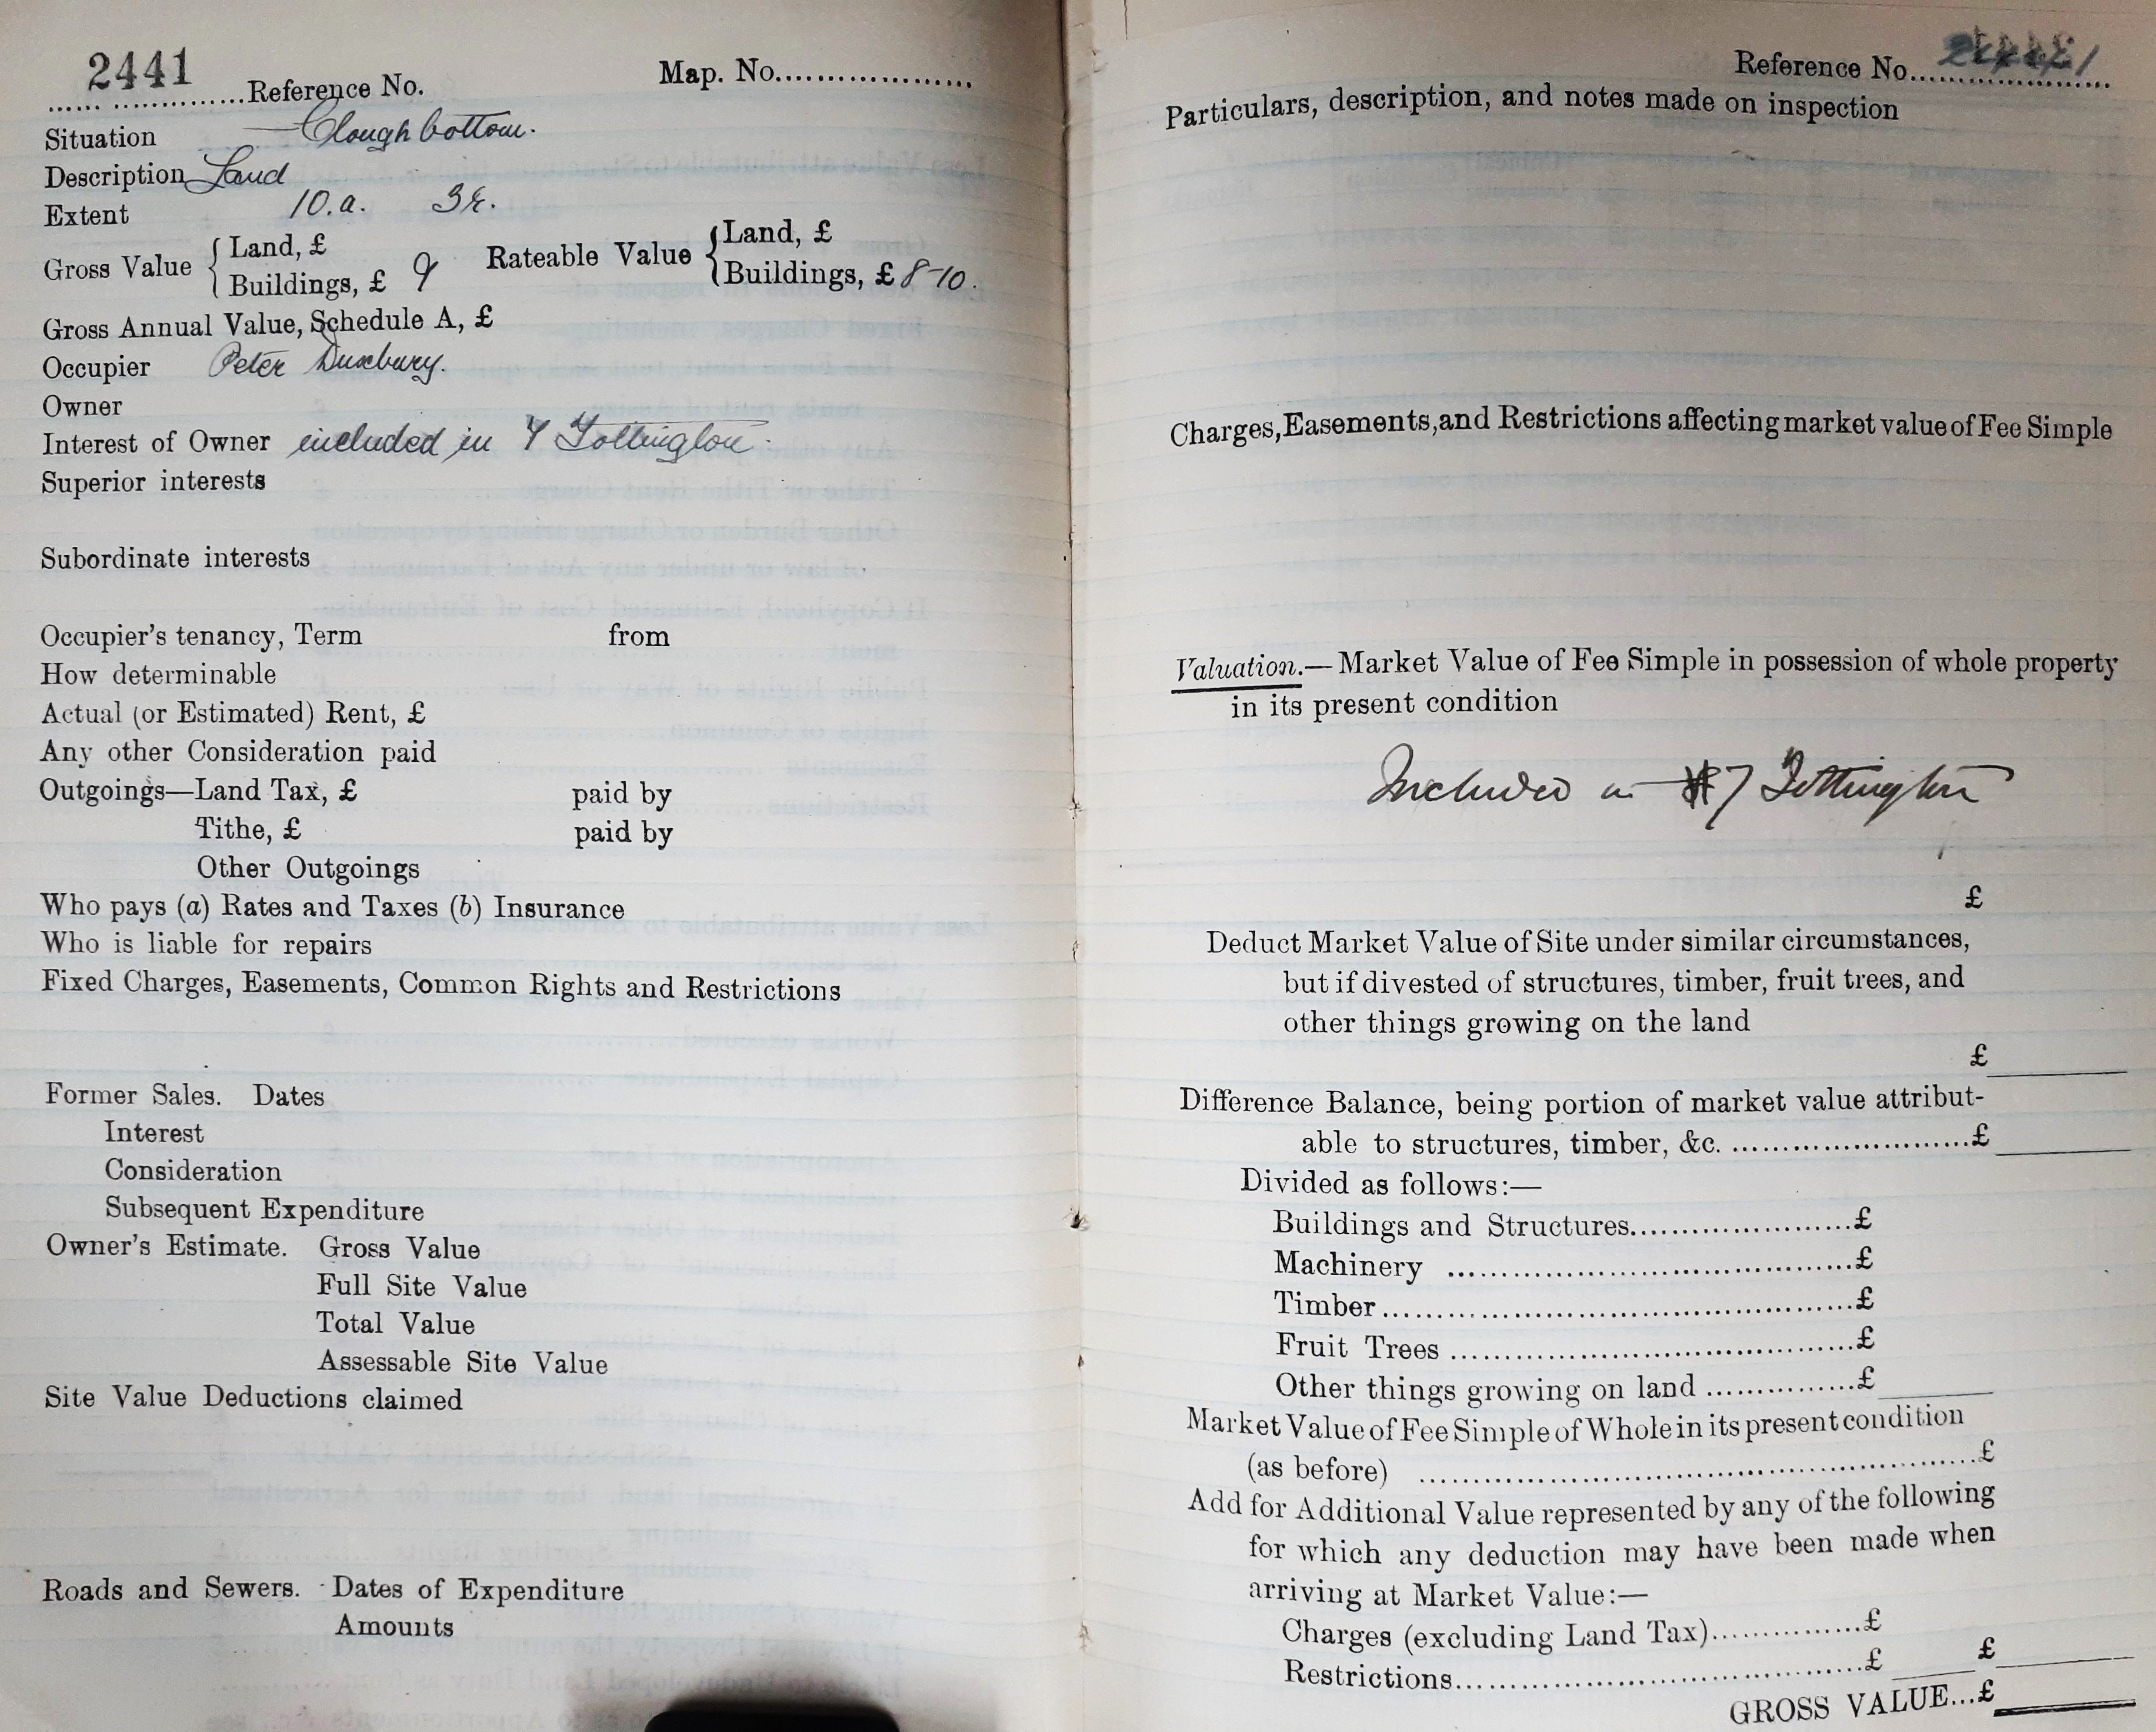 2441
...... .............Reference No. Map. No...................
Situation Cloughbottom.
Description Land
Extent 10.a. 3r.
Gross Value { Land, £ Rateable Value { Land, £
Buildings, £ 9 Buildings, £ 8-10.
Gross Annual Value, Schedule A, £
Occupier Peter Duxbury.
Owner
Interest of Owner included in 7 Tottington.
Superior interests
Subordinate interests
Occupier's tenancy, Term from
How determinable
Actual (or Estimated) Rent, £
Any other Consideration paid
Outgoings—Land Tax, £ paid by
Tithe, £ paid by
Other Outgoings
Who pays (a) Rates and Taxes (b) Insurance
Who is liable for repairs
Fixed Charges, Easements, Common Rights and Restrictions
Former Sales. Dates
Interest
Consideration
Subsequent Expenditure
Owner's Estimate. Gross Value
Full Site Value
Total Value
Assessable Site Value
Site Value Deductions claimed
Roads and Sewers. Dates of Expenditure
Amounts
Reference No.....................
Particulars, description, and notes made on inspection
Charges, Easements, and Restrictions affecting market value of Fee Simple
Valuation.—Market Value of Fee Simple in possession of whole property
in its present condition
Included in 7 Tottington
£
Deduct Market Value of Site under similar circumstances,
but if divested of structures, timber, fruit trees, and
other things growing on the land
£
Difference Balance, being portion of market value attribut-
able to structures, timber, &c. .........................£
Divided as follows:—
Buildings and Structures.......................£
Machinery ..........................................£
Timber.................................................£
Fruit Trees ..........................................£
Other things growing on land ...............£
Market Value of Fee Simple of Whole in its present condition
(as before) ..........................................................£
Add for Additional Value represented by any of the following
for which any deduction may have been made when
arriving at Market Value:—
Charges (excluding Land Tax)...............£
Restrictions..........................................£ £
GROSS VALUE...£